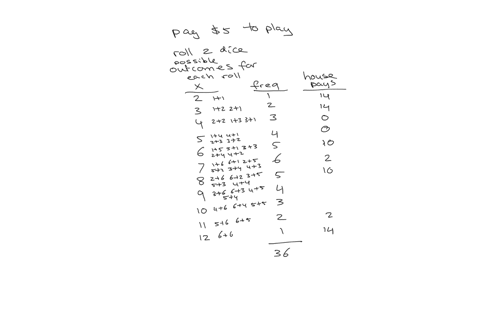 pay $5 to play
roll 2 dice
possible
outcomes for
each roll
X freq house pays
2 1+1 1 14
3 1+2 2+1 2 14
4 2+2 1+3 3+1 3 0
5 1+4 4+1 4 0
2+3 3+2
6 1+5 5+1 3+3 5 10
2+4 4+2
7 1+6 6+1 2+5 6 2
5+2 3+4 4+3
8 2+6 6+2 3+5 5 10
5+3 4+4
9 3+6 6+3 4+5 4
5+4
10 4+6 6+4 5+5 3
11 5+6 6+5 2 2
12 6+6 1 14
36